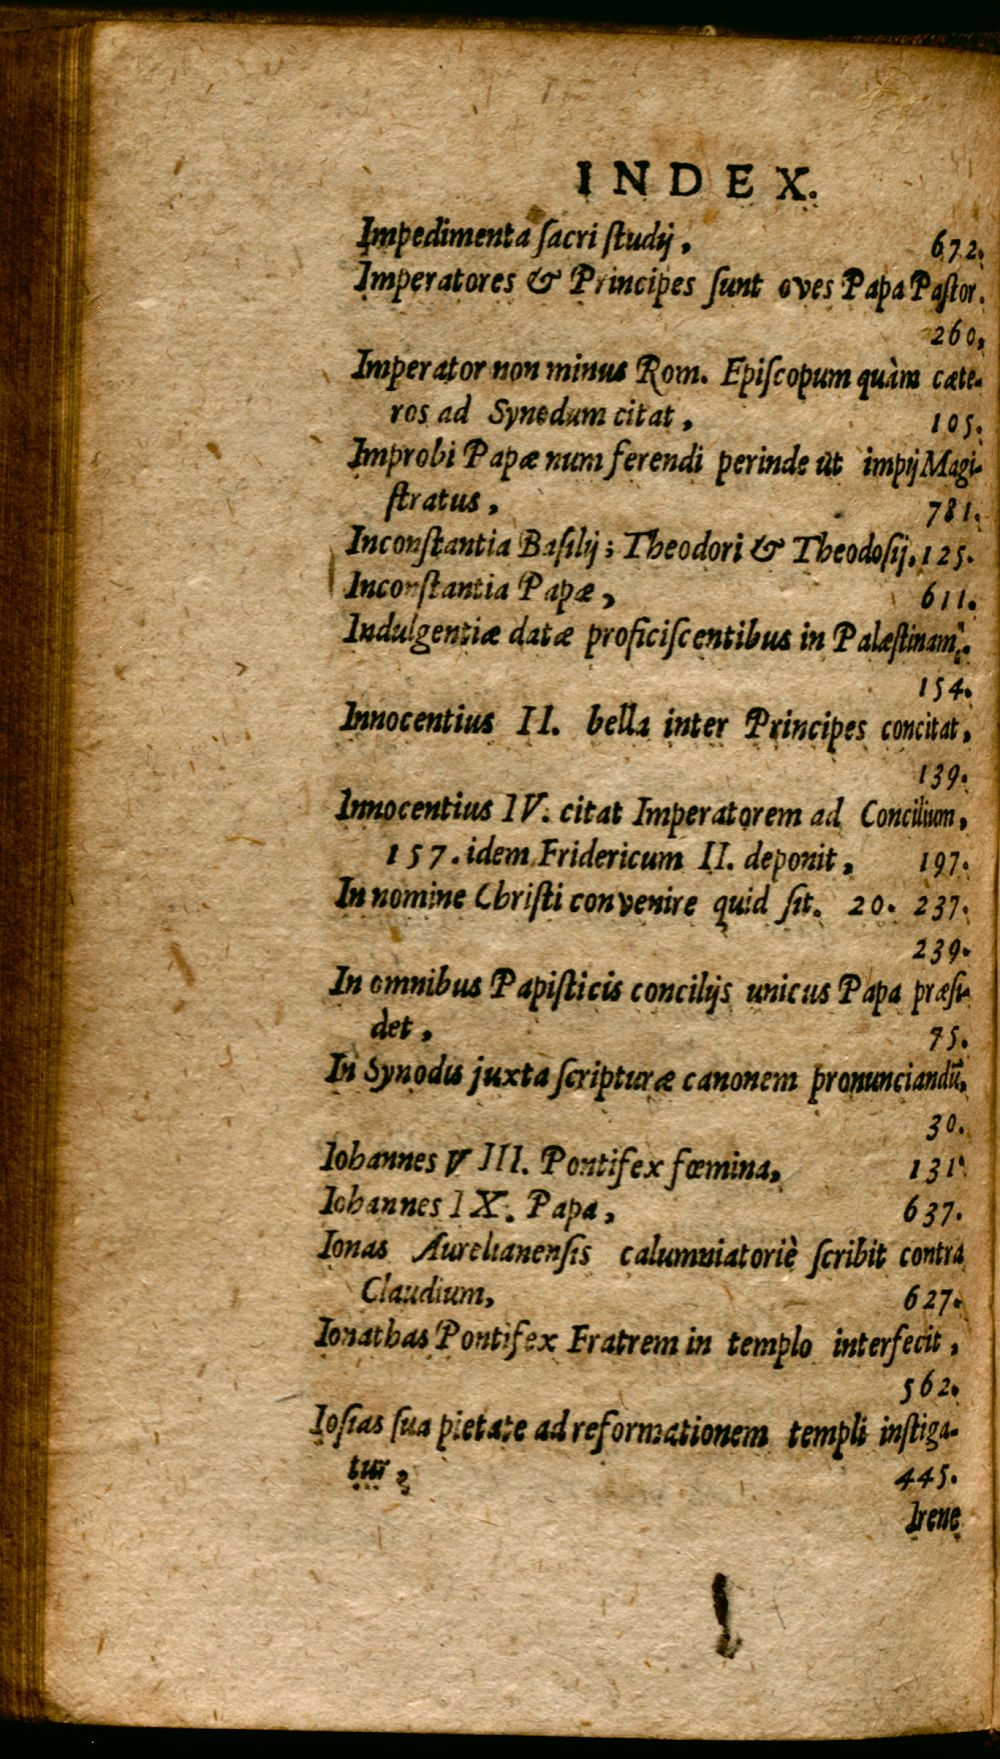 INDEX.
Impedimenta ſacri ſtudij, 672.
Imperatores & Principes ſunt oves Papa Paſtor.
260,
Imperator non minus Rom. Epiſcopum quàm cæte-
ros ad Synodum citat, 105.
Improbi Papæ num ferendi perinde ut impij Magi-
ſtratus, 781.
Inconſtantia Baſilij; Theodori & Theodoſij, 125.
Inconſtantia Papæ, 611.
Indulgentiæ datæ proficiſcentibus in Palæſtinam,
154.
Innocentius II. bella inter Principes concitat,
139.
Innocentius IV. citat Imperatorem ad Concilium,
157. idem Fridericum II. deponit, 197.
In nomine Chriſti convenire quid ſit. 20. 237.
239.
In omnibus Papiſticis concilijs unicus Papa præſi-
det, 75.
In Synodis juxta ſcripturæ canonem pronunciandū,
30.
Iohannes VIII. Pontifex fœmina, 131
Iohannes IX. Papa, 637.
Ionas Aurelianenſis calumniatoriè ſcribit contra
Claudium, 627.
Ionathas Pontifex Fratrem in templo interfecit,
562.
Ioſias ſua pietate ad reformationem templi inſtiga-
tur, 445.
Irene